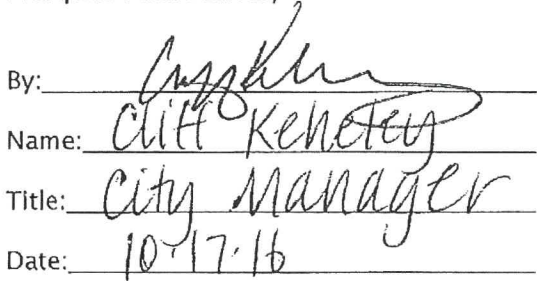 By:
Name: Cliff Keheley
Title: City Manager
Date: 10·17·16